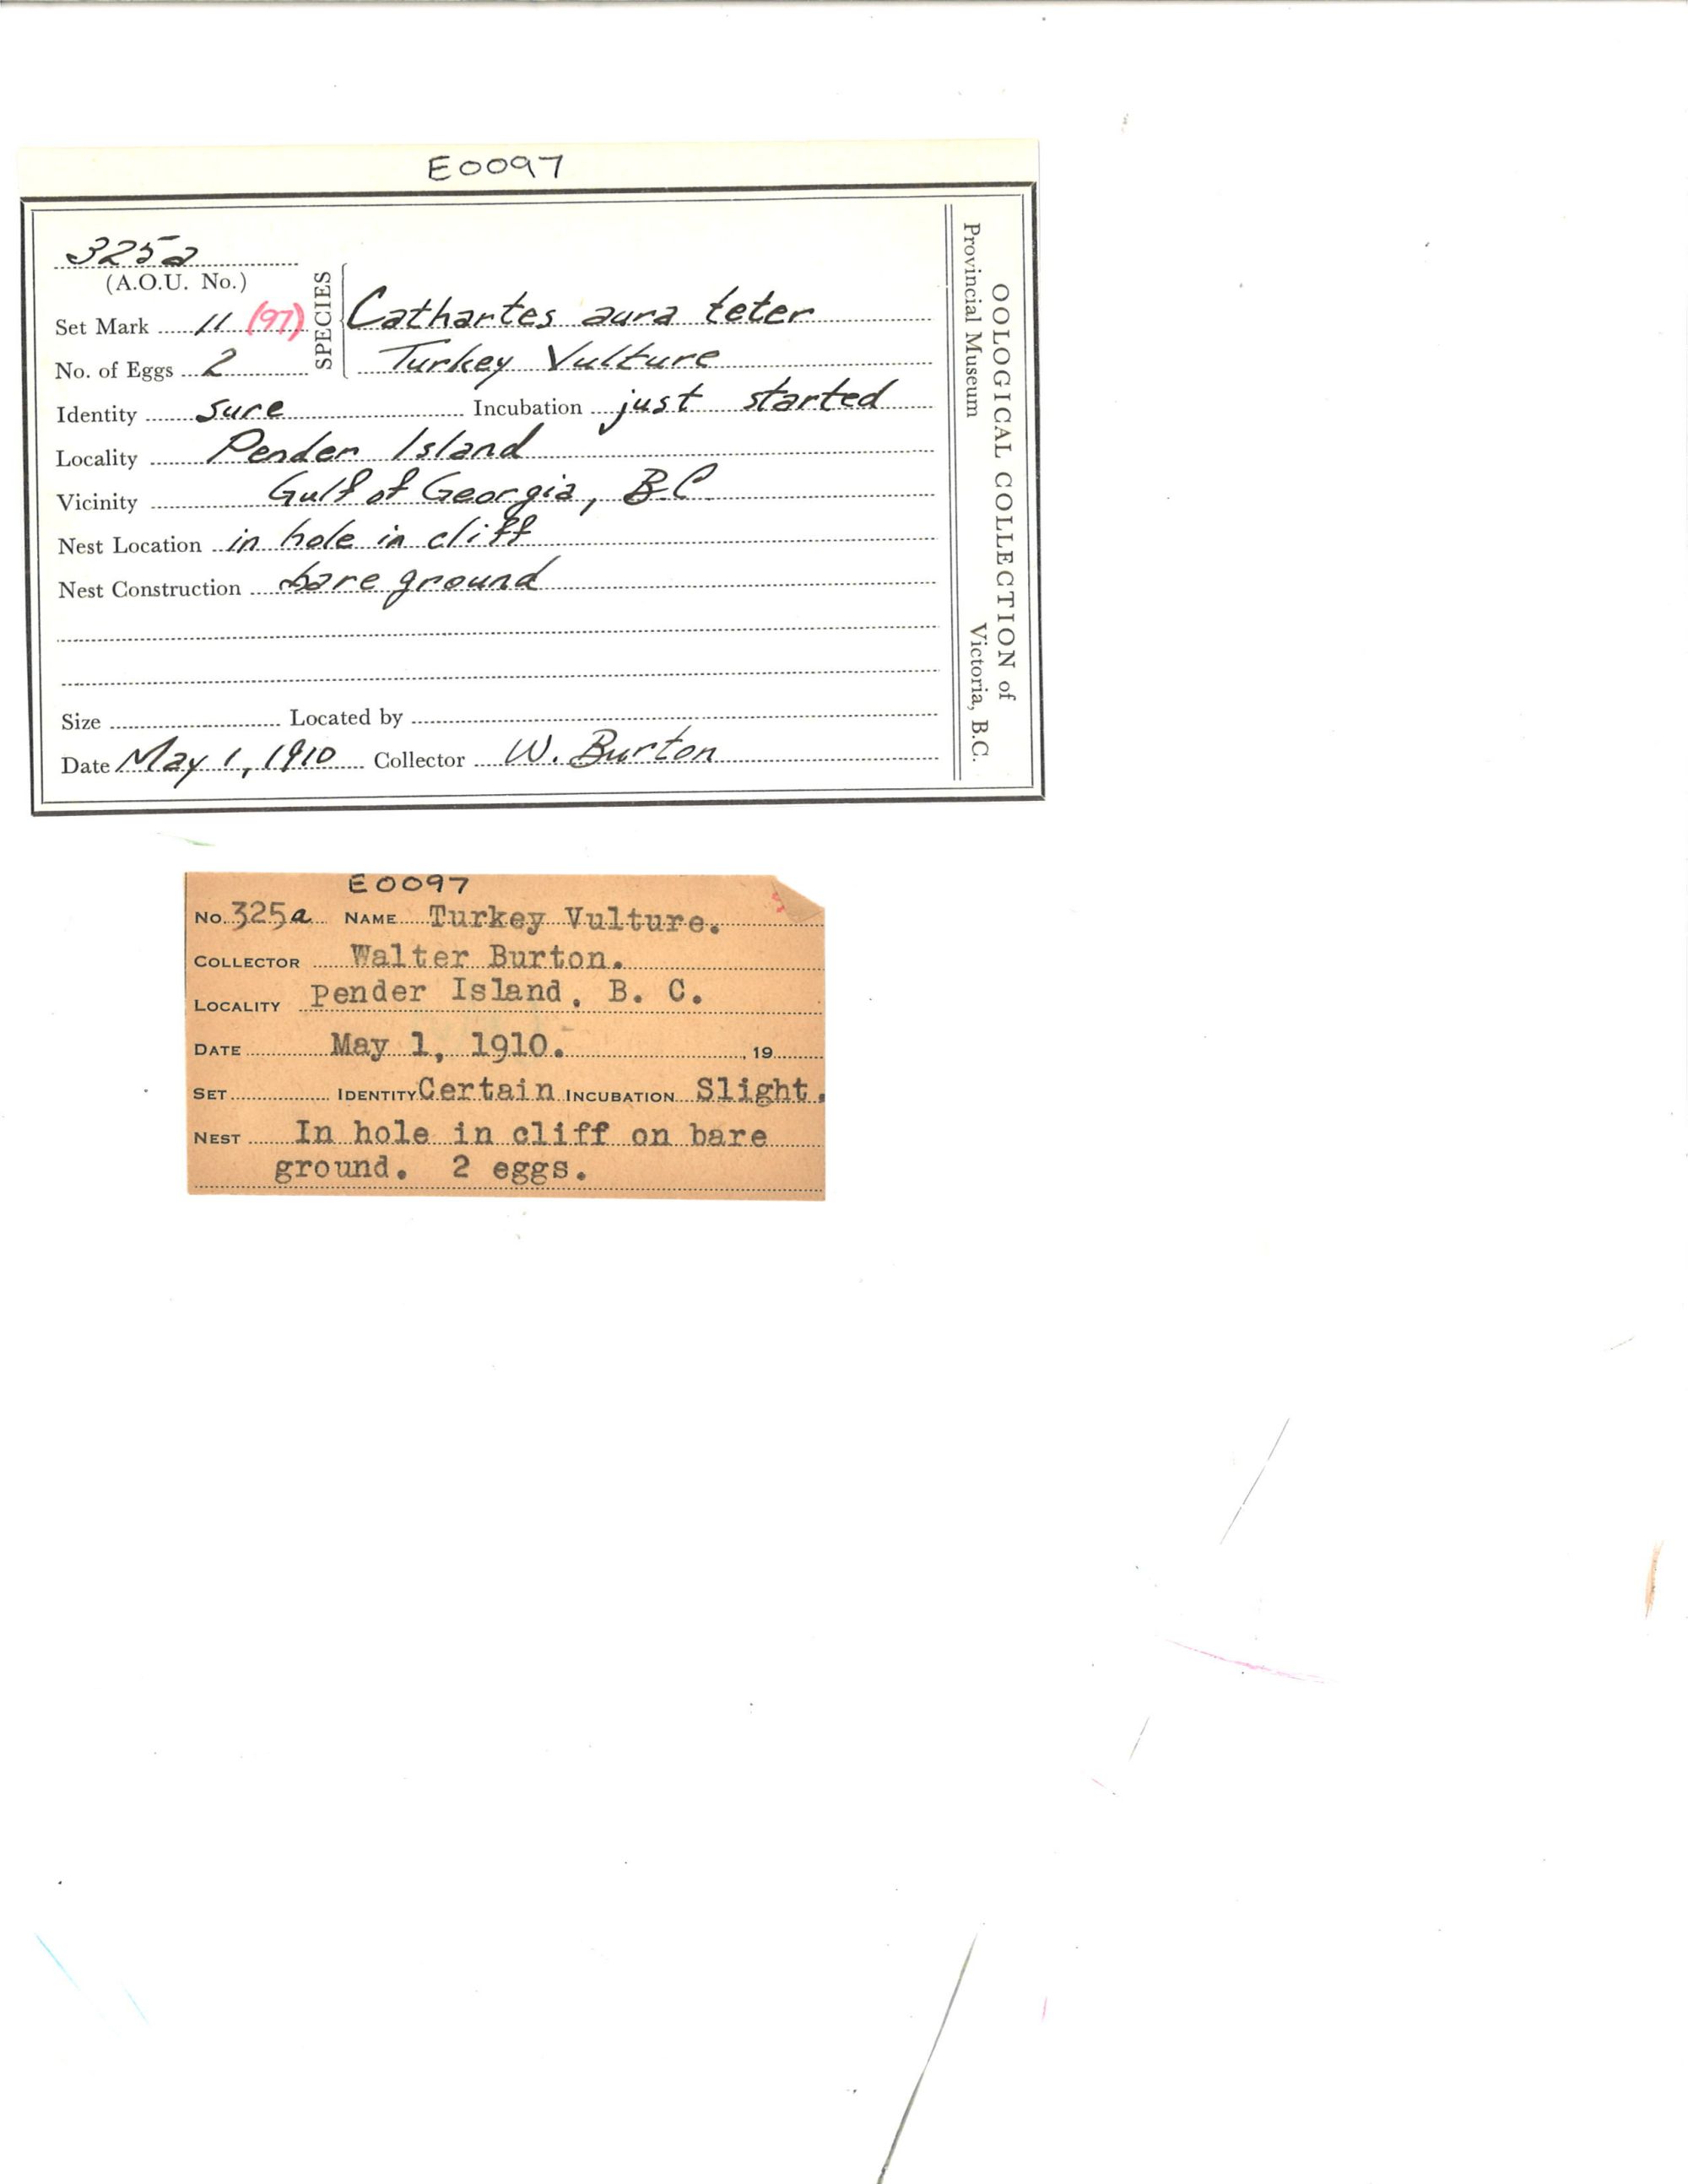 E0097
325a
(A.O.U. No.)
Set Mark 11 (97)
No. of Eggs 2
SPECIES
Cathartes aura teter
Turkey Vulture
Identity sure Incubation just started
Locality Pender Island
Vicinity Gulf of Georgia, B.C.
Nest Location in hole in cliff
Nest Construction bare ground
Size Located by
Date May 1, 1910 Collector W. Burton
OOLOGICAL COLLECTION of
Provincial Museum Victoria, B.C.
E0097
No. 325a NAME Turkey Vulture.
COLLECTOR Walter Burton.
LOCALITY Pender Island. B. C.
DATE May 1, 1910. , 19
SET IDENTITY Certain INCUBATION Slight.
NEST In hole in cliff on bare
ground. 2 eggs.